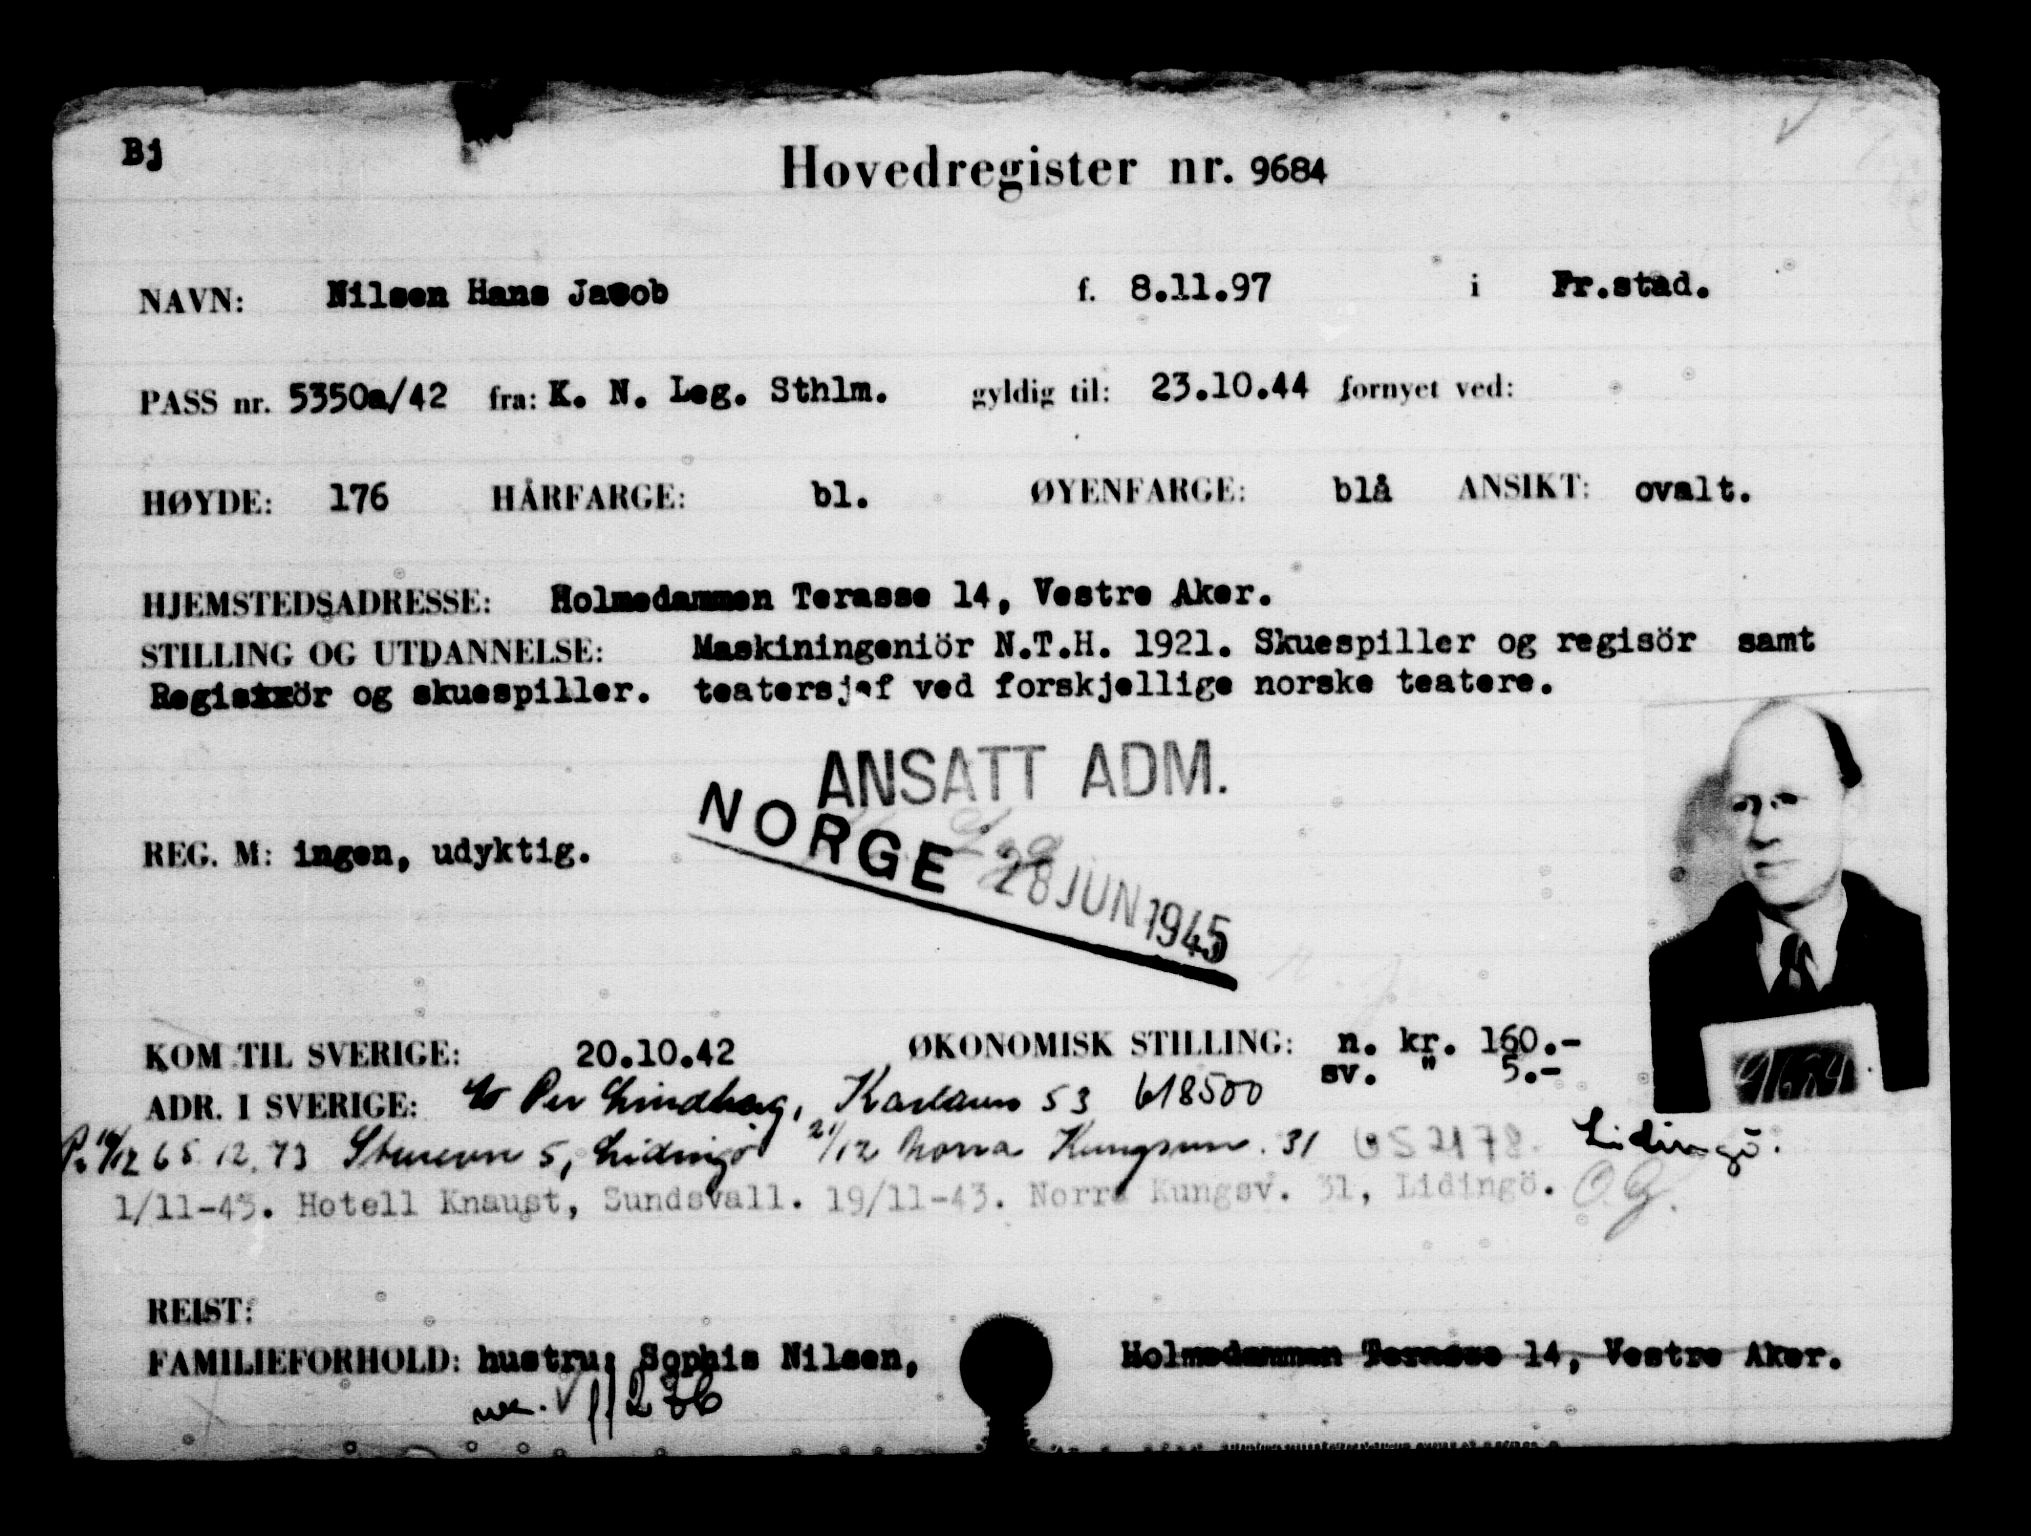 Bj
Hovedregister nr. 9684
NAVN: Nilsen Hans Jacob f. 8.11.97 i Fr.stad.
PASS nr. 5350a/42 fra: K. N. Leg. Sthlm. gyldig til: 23.10.44 fornyet ved:
HØYDE: 176 HÅRFARGE: bl. ØYENFARGE: blå ANSIKT: ovalt.
HJEMSTEDSADRESSE: Holmedammen Terasse 14, Vestre Aker.
STILLING OG UTDANNELSE: Maskiningeniör N.T.H. 1921. Skuespiller og regisör samt
Regisxxör og skuespiller. teatersjef ved forskjellige norske teatere.
ANSATT ADM.
NORGE 28 JUN 1945
REG. M: ingen, udyktig.
KOM TIL SVERIGE: 20.10.42 ØKONOMISK STILLING: n. kr. 160.-
sv. " 5.-
ADR. I SVERIGE: c/o Per Lindberg, Karlav 53 618500
65 12 73 5, Lidingö 21/12 Norra Kungsv. 31 Lidingö.
1/11-43. Hotell Knaust, Sundsvall. 19/11-43. Norra Kungsv. 31, Lidingö. O.G.
REIST:
FAMILIEFORHOLD: hustru: Sophie Nilsen, Holmedammen Terasse 14, Vestre Aker.
9684